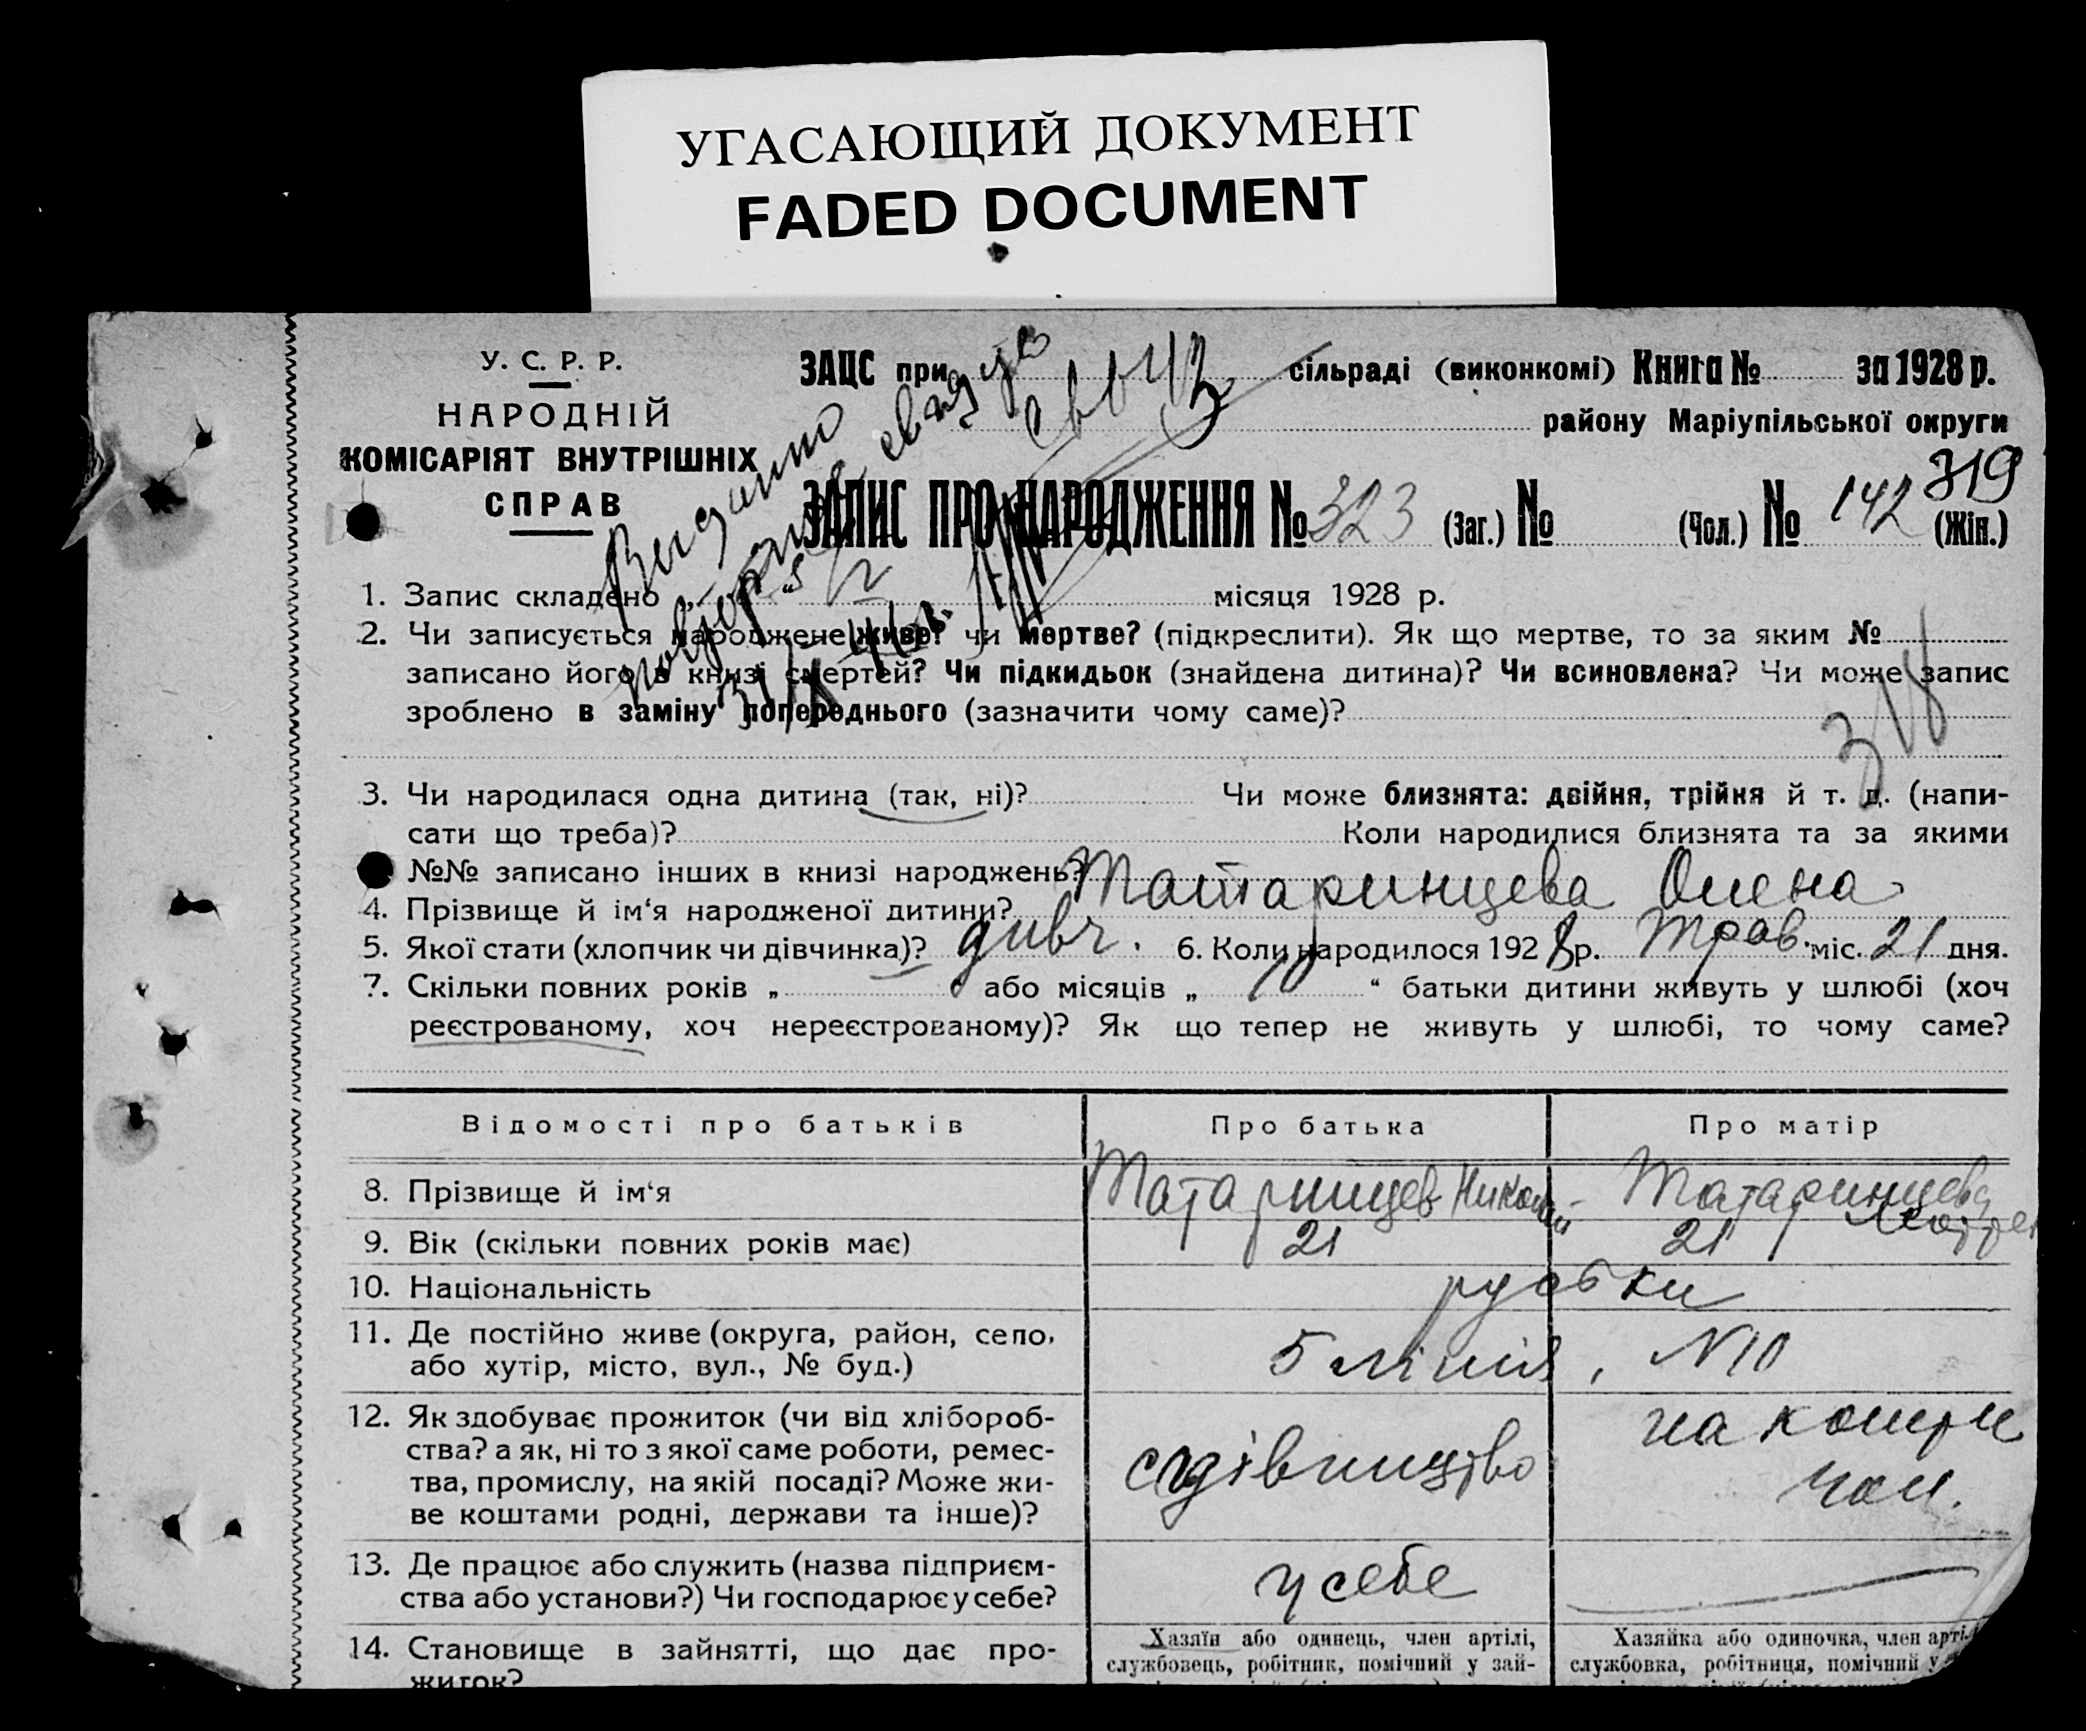 УГАСАЮЩИЙ ДОКУМЕНТ
FADED DOCUMENT
У. С. Р. Р.
НАРОДНІЙ
КОМІСАРІЯТ ВНУТРІШНІХ
СПРАВ
ЗАЦС при сільраді (виконкомі) Книга № за 1928 р.
району Маріупільської округи
319
ЗАПИС ПРО НАРОДЖЕННЯ № 323 (Заг.) № (Чол.) № 142 (Жін.)
1. Запис складено „ “ місяця 1928 р.
2. Чи записується народжене живе? чи мертве? (підкреслити). Як що мертве, то за яким №
записано його в книзі смертей? Чи підкидьок (знайдена дитина)? Чи всиновлена? Чи може запис
зроблено в заміну попереднього (зазначити чому саме)?
318
3. Чи народилася одна дитина (так, ні)? Чи може близнята: двійня, трійня й т. д. (напи-
сати що треба)? Коли народилися близнята та за якими
№№ записано інших в книзі народжень?
4. Прізвище й ім‘я народженої дитини? Татаринцева Олена
5. Якої стати (хлопчик чи дівчинка)? дивч. 6. Коли народилося 1928 р. Трав. міс. 21 дня.
7. Скільки повних років „ “ або місяців „ 10 “ батьки дитини живуть у шлюбі (хоч
реєстрованому, хоч нереєстрованому)? Як що тепер не живуть у шлюбі, то чому саме?
Відомості про батьків Про батька Про матір
8. Прізвище й ім‘я Татаринцев Николай Татаринцева
9. Вік (скільки повних років має) 21 21
10. Національність руські
11. Де постійно живе (округа, район, село, 5 лінія, N10
або хутір, місто, вул., № буд.)
12. Як здобуває прожиток (чи від хлібороб- на кошти
ства? а як, ні то з якої саме роботи, ремес-
тва, промислу, на якій посаді? Може жи- чол.
ве коштами родні, держави та інше)?
13. Де працює або служить (назва підприєм- у себе
ства або установи?) Чи господарює у себе?
14. Становище в зайнятті, що дає про- Хазяїн або одинець, член артілі, Хазяйка або одиночка, член арті
житок? службовець, робітник, помічний у зай- службовка, робітниця, помічний у